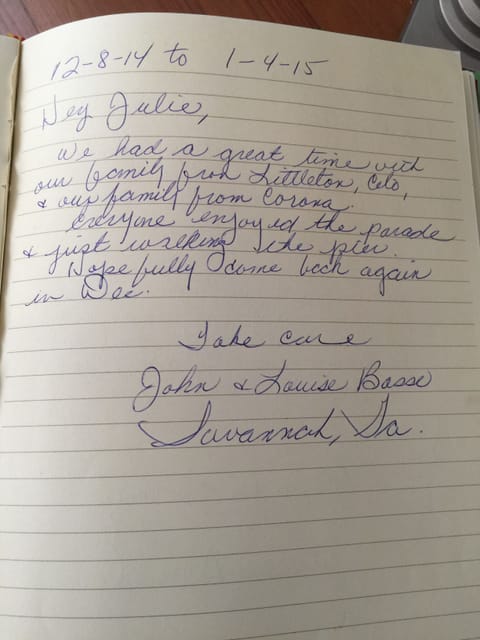 12-8-14 to 1-4-15
Hey Julie,
We had a great time with
our family from Littleton, Colo,
& our family from Corona.
Everyone enjoyed the parade
& just walking the pier.
Hopefully come back again
in Dec.
Take care
John & Louise Basse
Savannah, Ga.